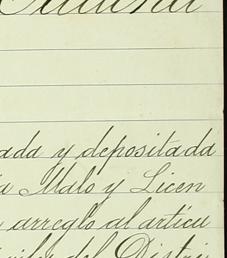 ada y depositada
a Malo y Licen
arreglo al articu
del Distri